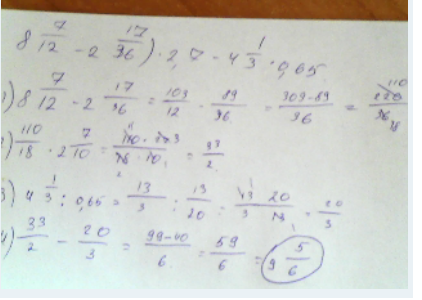 8 7/12 - 2 17/36) · 2,7 - 4 1/3 : 0,65
1) 8 7/12 - 2 17/36 = 103/12 - 89/36 = 309-89/36 = 220/36 110 18
2) 110/18 · 2 7/10 = 110 · 27 3/18 · 10 = 33/2
3) 4 1/3 : 0,65 = 13/3 : 13/20 = 13 · 20/3 · 13 = 20/3
4) 33/2 - 20/3 = 99-40/6 = 59/6 = 9 5/6